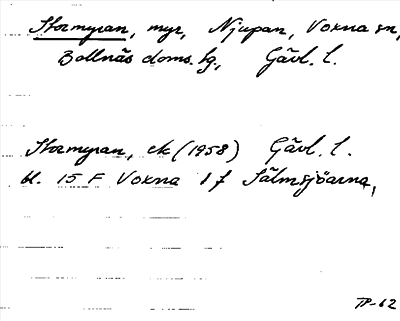 Stormyran, myr, Njupan, Voxna sn,
Bollnäs doms. lg., Gävl. l.
Stormyran, ek (1958) Gävl. l.
bl. 15 F Voxna 1 f Sälmsjöarna,
TP-62